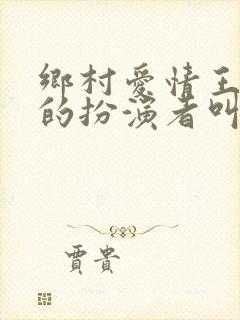 鄉村愛情王
的扮演者叫
賈貴